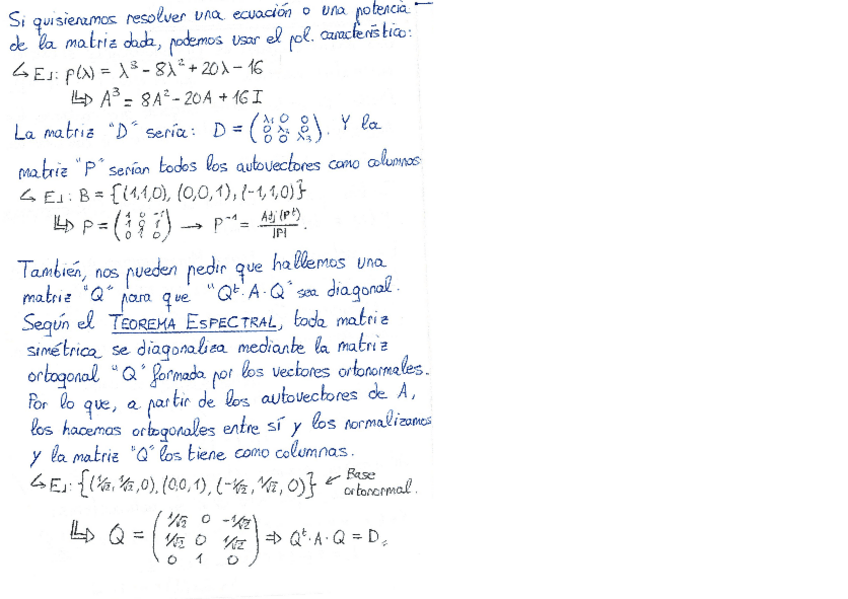 Si quisieramos resolver una ecuación o una potencia
de la matriz dada, podemos usar el pol. característico:
↳ EJ: p(λ) = λ³ - 8λ² + 20λ - 16
⇒ A³ = 8A² - 20A + 16 I
La matriz "D" sería: D = (λ₁ 0 0 / 0 λ₂ 0 / 0 0 λ₃). Y la
matriz "P" serían todos los autovectores como columnas
↳ EJ: B = {(1,1,0), (0,0,1), (-1,1,0)}
⇒ P = (1 0 -1 / 1 0 1 / 0 1 0) → P⁻¹ = Adj(Pᵗ)/|P|.
También, nos pueden pedir que hallemos una
matriz "Q" para que "Qᵗ·A·Q" sea diagonal.
Según el TEOREMA ESPECTRAL, toda matriz
simétrica se diagonaliza mediante la matriz
ortogonal "Q" formada por los vectores ortonormales.
Por lo que, a partir de los autovectores de A,
los hacemos ortogonales entre sí y los normalizamos
y la matriz "Q" los tiene como columnas.
↳ EJ: {(1/√2, 1/√2, 0), (0,0,1), (-1/√2, 1/√2, 0)} ← Base
ortonormal.
⇒ Q = (1/√2 0 -1/√2 / 1/√2 0 1/√2 / 0 1 0) ⇒ Qᵗ·A·Q = D